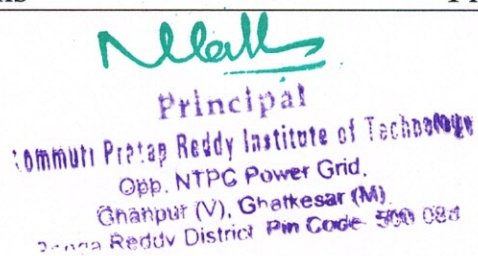 Principal
Kommuri Pratap Reddy Institute of Technology
Opp. NTPC Power Grid,
Ghanpur (V), Ghatkesar (M)
Ranga Reddy District Pin Code 500 088